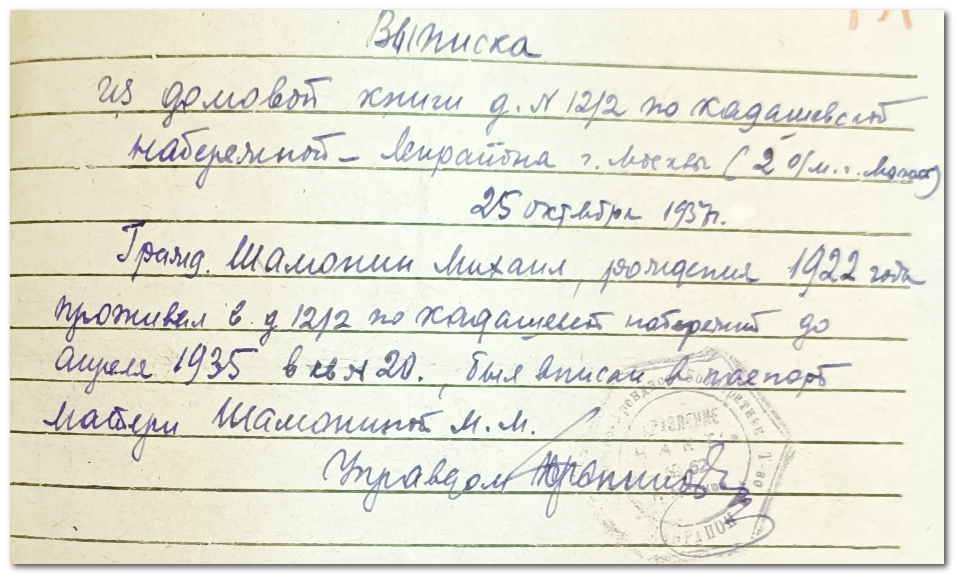 Выписка
из домовой книги д. N 12/2 по кадашевской
набережной – Ленрайона г. Москвы (2 о/м. г. Москв)
25 октября 1937г.
Гражд. Шамонин Михаил, рождения 1922 года
проживал в д 12/2 по кадашевской набережной до
апреля 1935 в кв N 20., был вписан в паспорт
матери Шамониной М. М.
Управдом